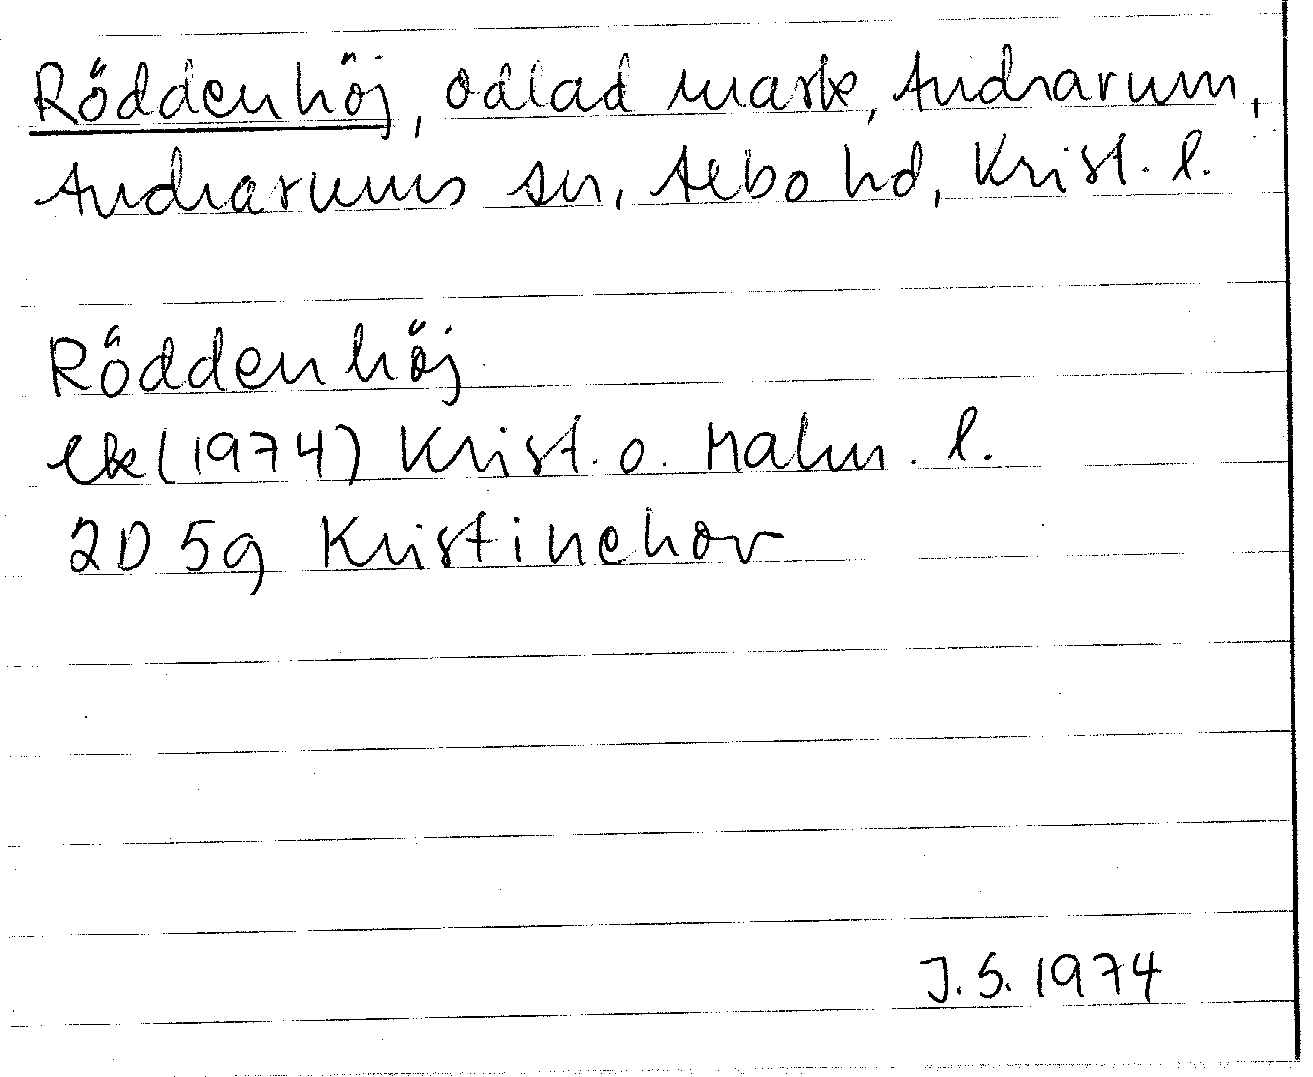 Röddenhöj, odlad mark, Andrarum,
Andrarums sn, Albo hd, Krist. l.
Röddenhöj
ek (1974) Krist. o. Malm. l.
2D 5g Kristinehov
J.S. 1974